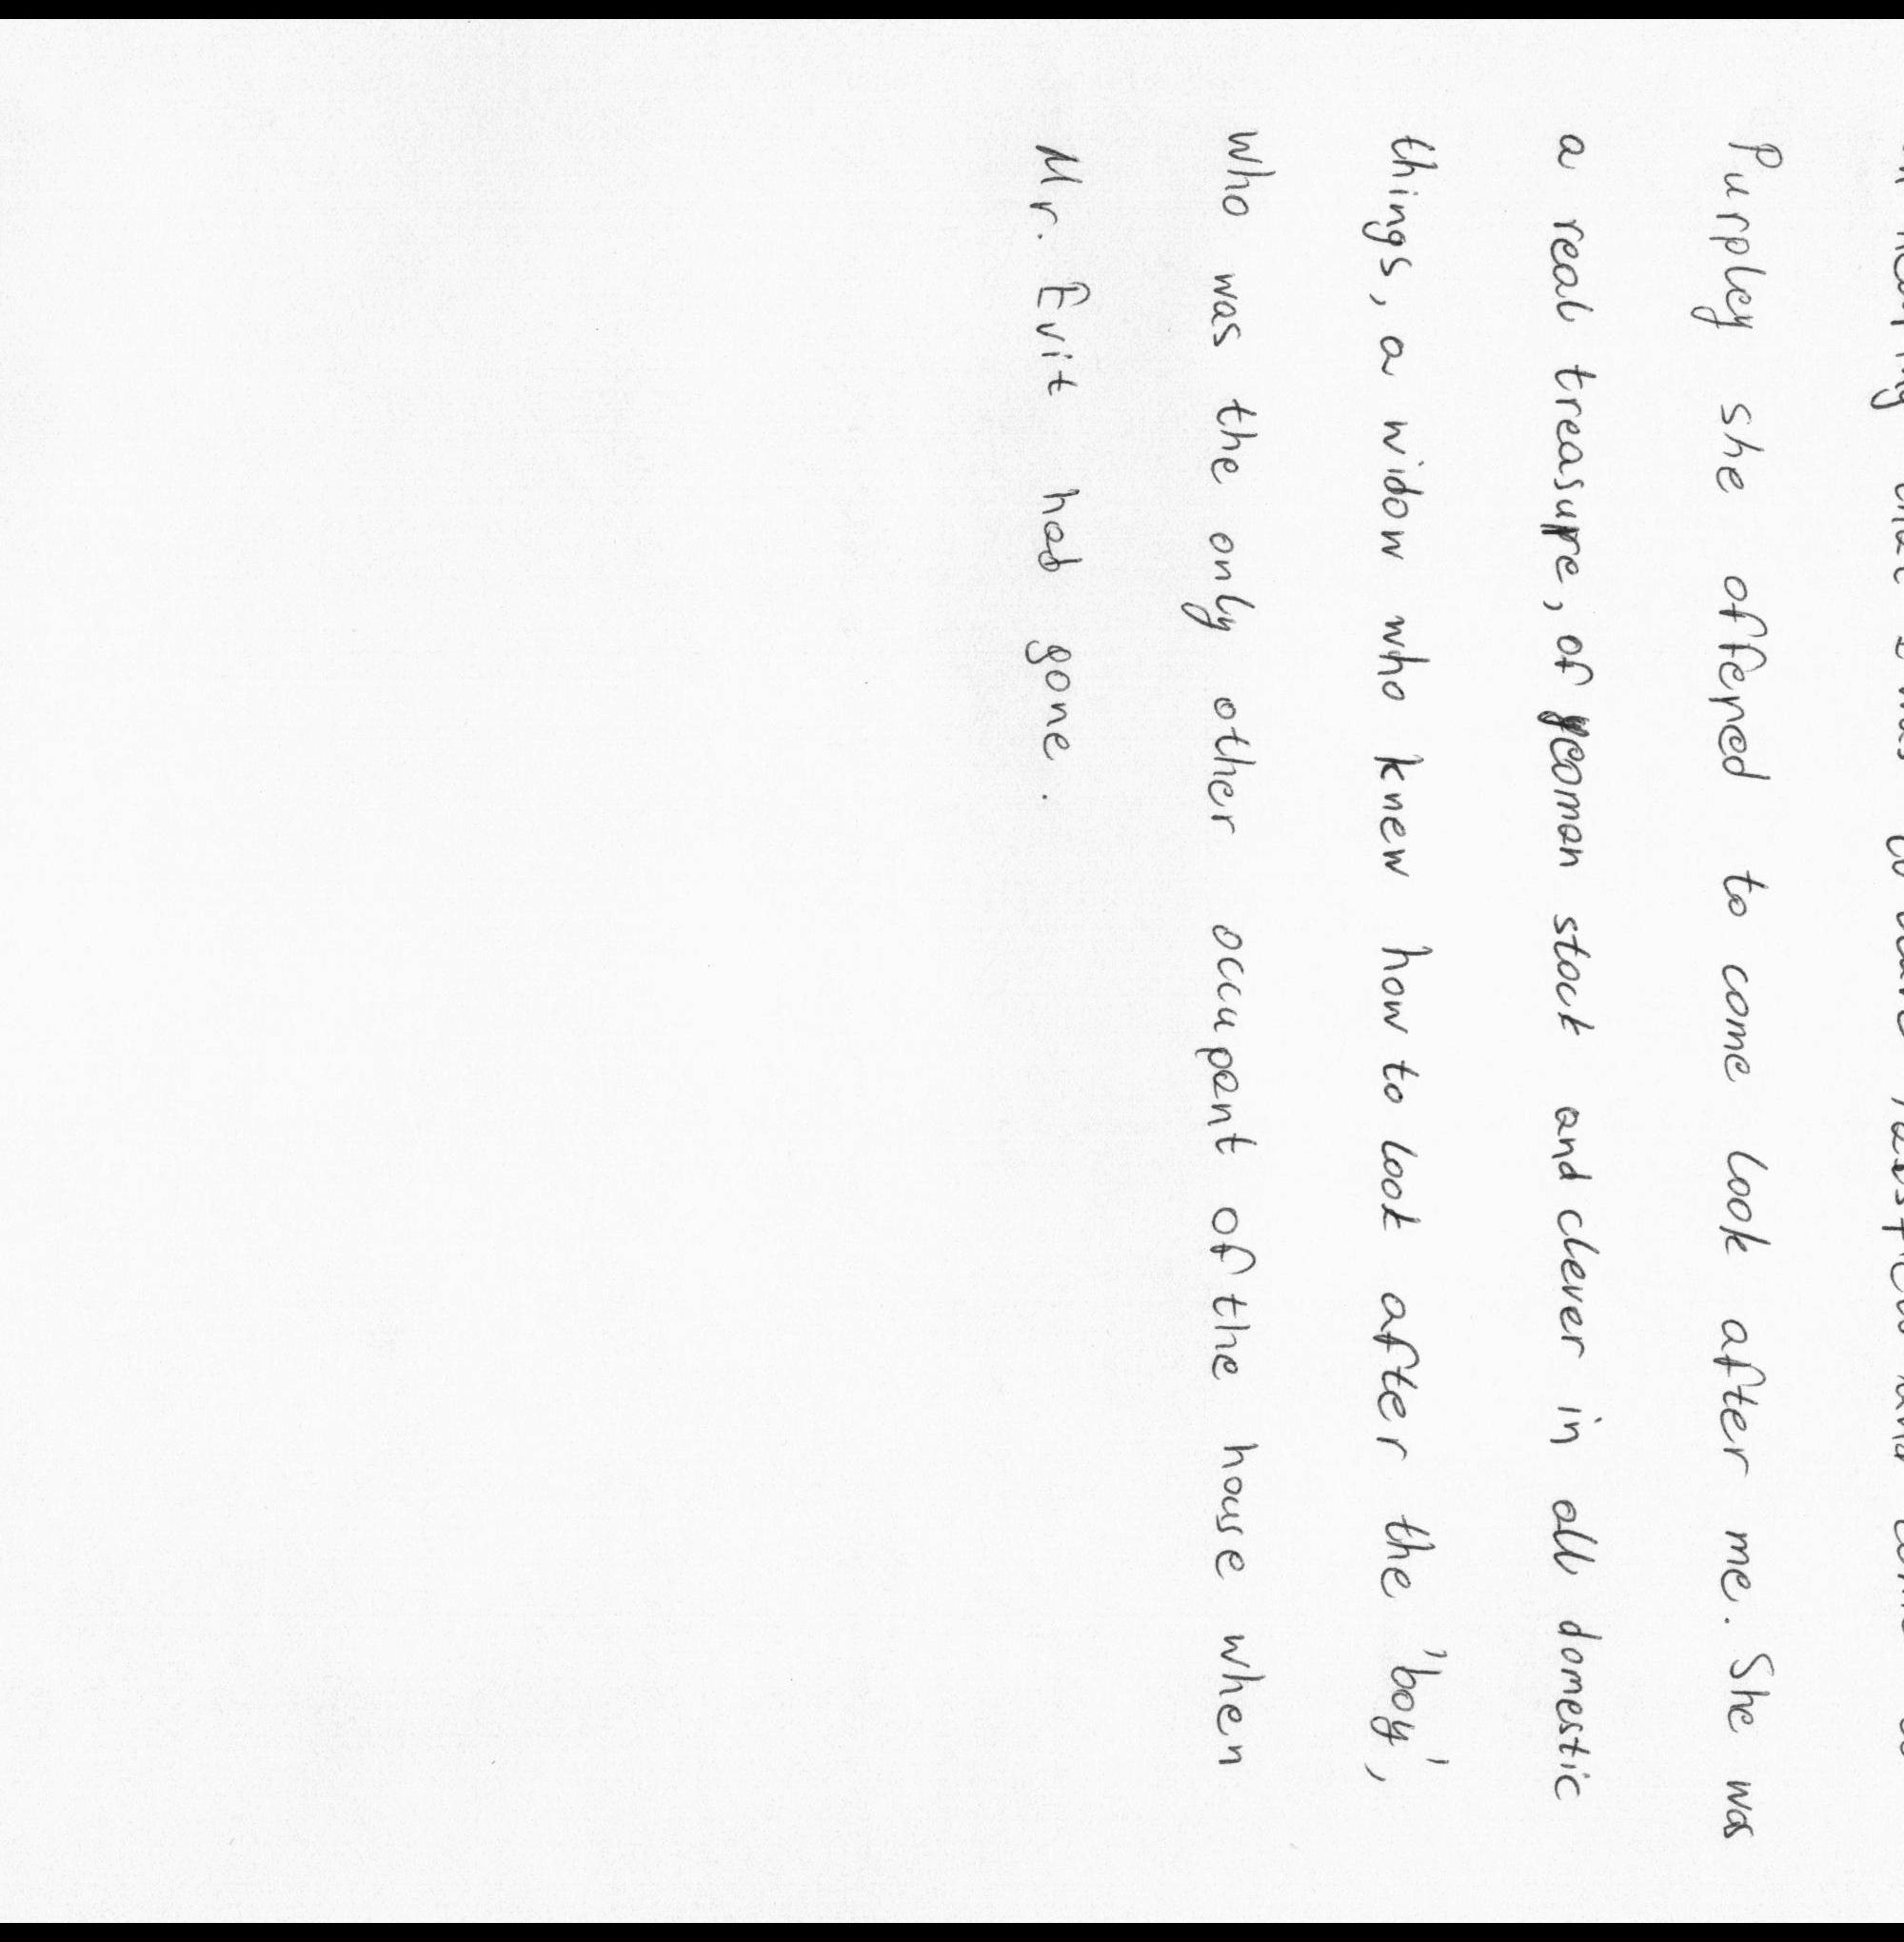 hearing that I was to
Purpley she offered to come look after me. She was
a real treasure, of yeoman stock and clever in all domestic
things, a widow who knew how to look after the 'boy',
who was the only other occupant of the house when
Mr. Evit had gone.